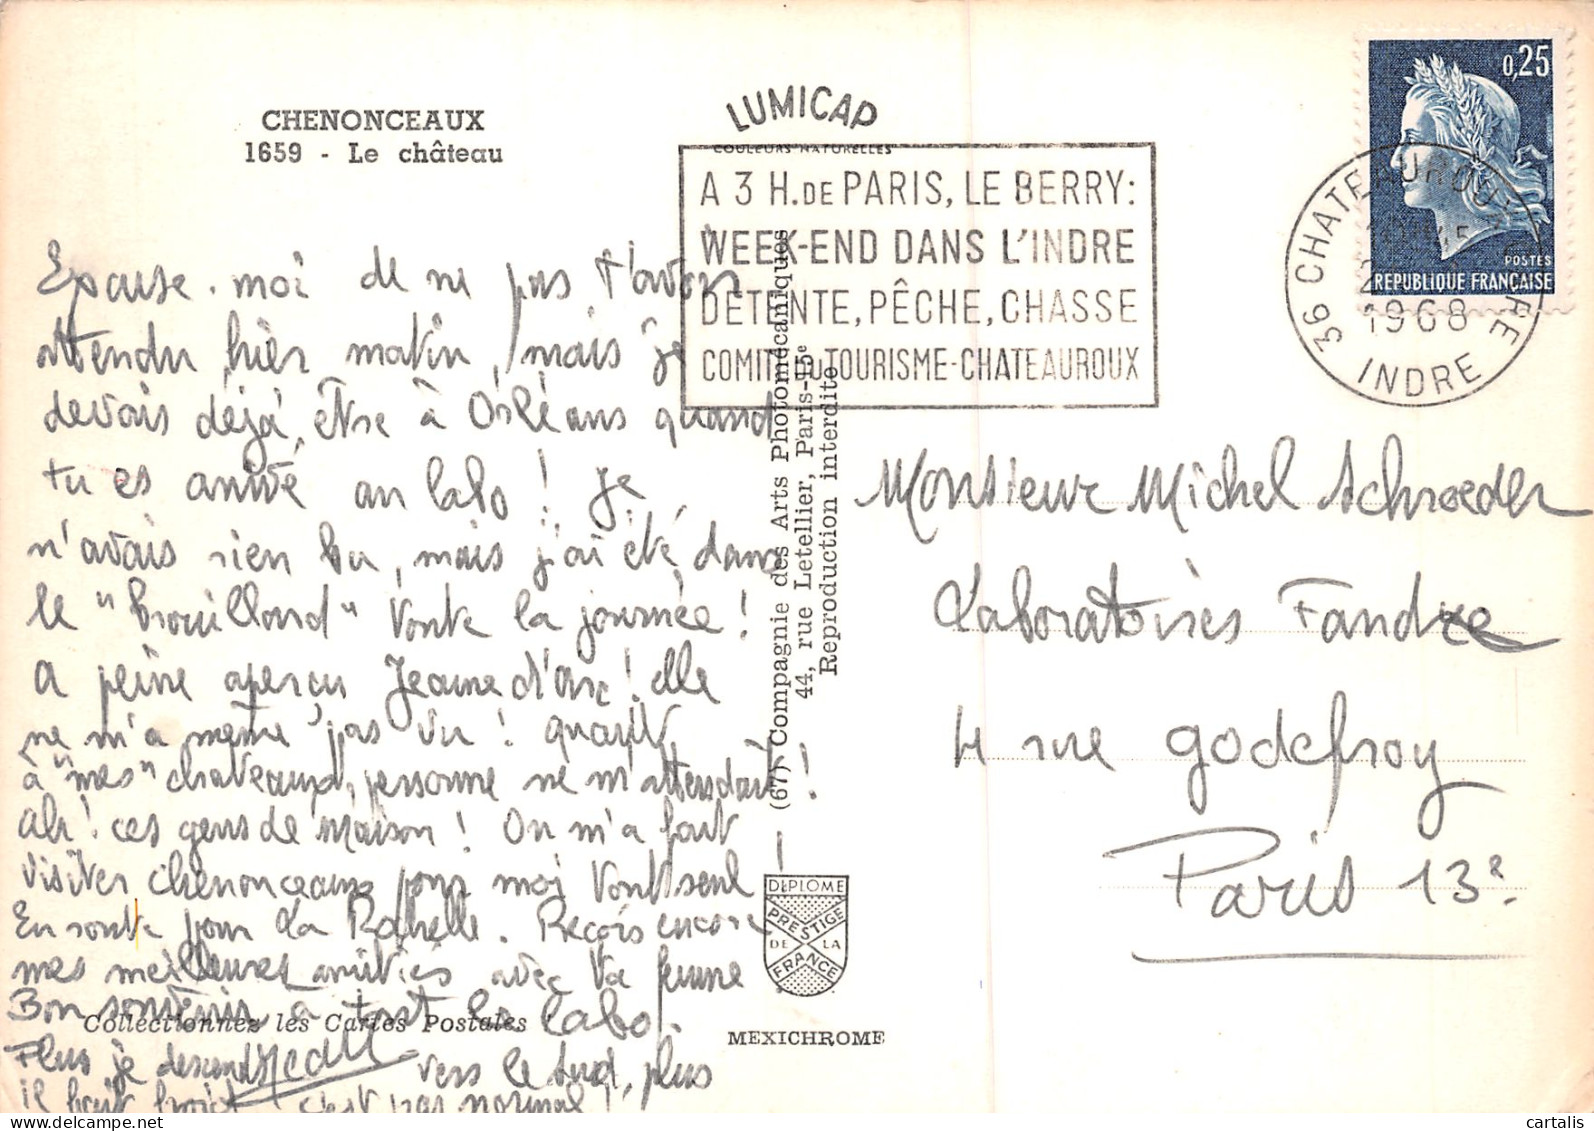 CHENONCEAUX
1659 - Le château
LUMICAP
COULEURS NATURELLES
A 3 H. DE PARIS, LE BERRY:
WEEK-END DANS L'INDRE
DÉTENTE, PÊCHE, CHASSE
COMITÉ DU TOURISME-CHATEAUROUX
0,25
POSTES
REPUBLIQUE FRANÇAISE
36 CHATEAUROUX
1968
INDRE
Excuse-moi de ne pas t'avoir
attendu hier matin, mais je
devais déjà être à Orléans quand
tu es arrivé au labo ! Je
n'avais rien bu, mais j'ai été dans
le "brouillard" toute la journée !
A peine aperçu Jeanne d'Arc ! elle
ne m'a même pas vu ! quant
à "mes" chateaux, personne ne m'attendait !
Ah ! ces gens de maison ! On m'a fait
visiter chenonceaux pour moi tout seul !
En route pour La Rochelle. Reçois encore
mes meilleures amitiés avec ta femme
Bon souvenir à tout le labo.
Plus je descends vers le Sud, plus
il fait froid c'est pas normal !
Collectionnez les Cartes Postales
(67) Compagnie des Arts Photomécaniques
44, rue Letellier, Paris-15e
Reproduction interdite
DIPLOME
PRESTIGE
DE LA
FRANCE
MEXICHROME
Monsieur Michel Schroeder
Laboratoires Fandre
4 rue godefroy
Paris 13e
cartalis
© www.delcampe.net